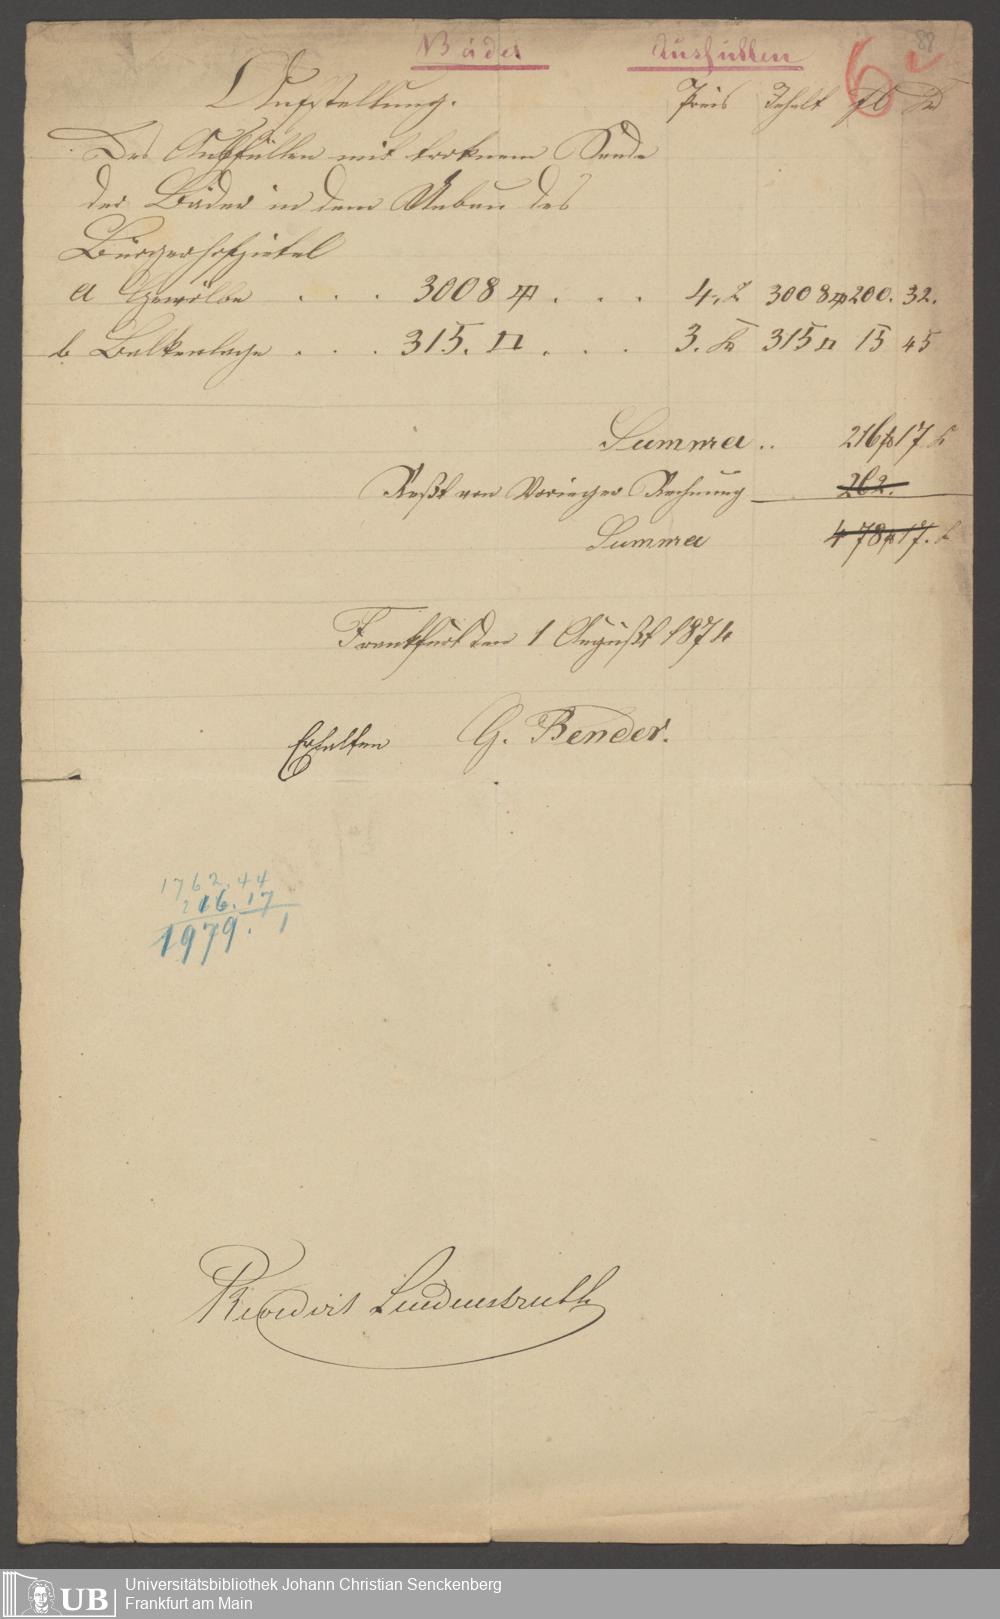 Bäder Ausfüllen 6
88
Aufstellung. Preis Inhalt fl Kr
Des Auffüllen mit troknem Sande
der Bäder in dem Anbau des
Bürgerhospitel
a Gewölbe . . . 3008 . . . 4. 3008 200. 32.
b. Balkenlage . . . 315. □ . . . 3. Kr 315 □ 15 45
Summa .. 216 fl 17 Kr
Reßt von Vorieger Rechnung 262.
Summa 478 fl 17. Kr
Frankfurt den 1 Augußt 1874
Erhalten G. Bender.
1762.44
216.17
1979. 1
Revidirt Lindenstruth
UB Universitätsbibliothek Johann Christian Senckenberg
Frankfurt am Main